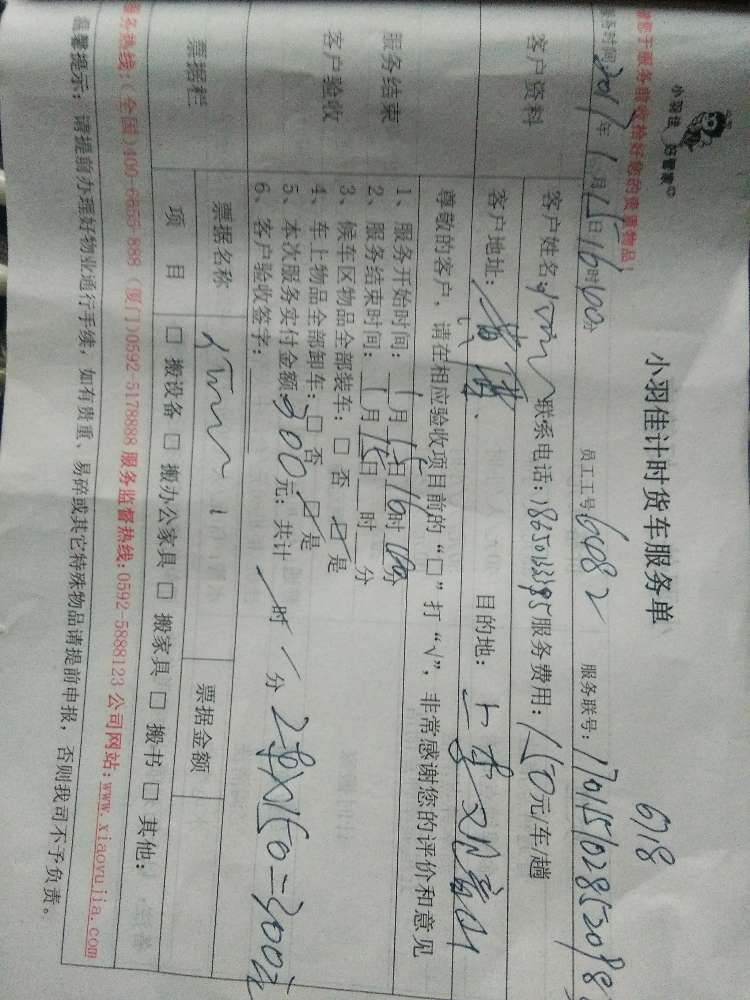 小羽佳 好管家
收拾好您的贵重物品!
小羽佳计时货车服务单
6718
服务时间: 2017年1月15日16时00分 员工工号6082 服务联号: 170151028520
客户资料
客户姓名 联系电话: 服务费用: 150元/车/趟
客户地址: 目的地:
服务结束
客户验收
尊敬的客户,请在相应验收项目前的“□”打“√”,非常感谢您的评价和意见
1、服务开始时间: 1月15日16时00分
2、服务结束时间: 1月15日 时 分
3、候车区物品全部装车: □ 否 ☑ 是
4、车上物品全部卸车: □ 否 ☑ 是
5、本次服务实付金额300元; 共计 / 时 / 分 2单X150=300元
6、客户验收签字:
票据栏
票据名称 票据金额
项 目 □ 搬设备 □ 搬办公家具 □ 搬家具 □ 搬书 □ 其他:
服务热线:(全国)400-6855-888 (厦门)0592-5178888 服务监督热线:0592-5888123 公司网站:www.xiaoyujia.com
温馨提示: 请提前办理好物业通行手续, 如有贵重、易碎或其它特殊物品请提前申报, 否则我司不予负责。